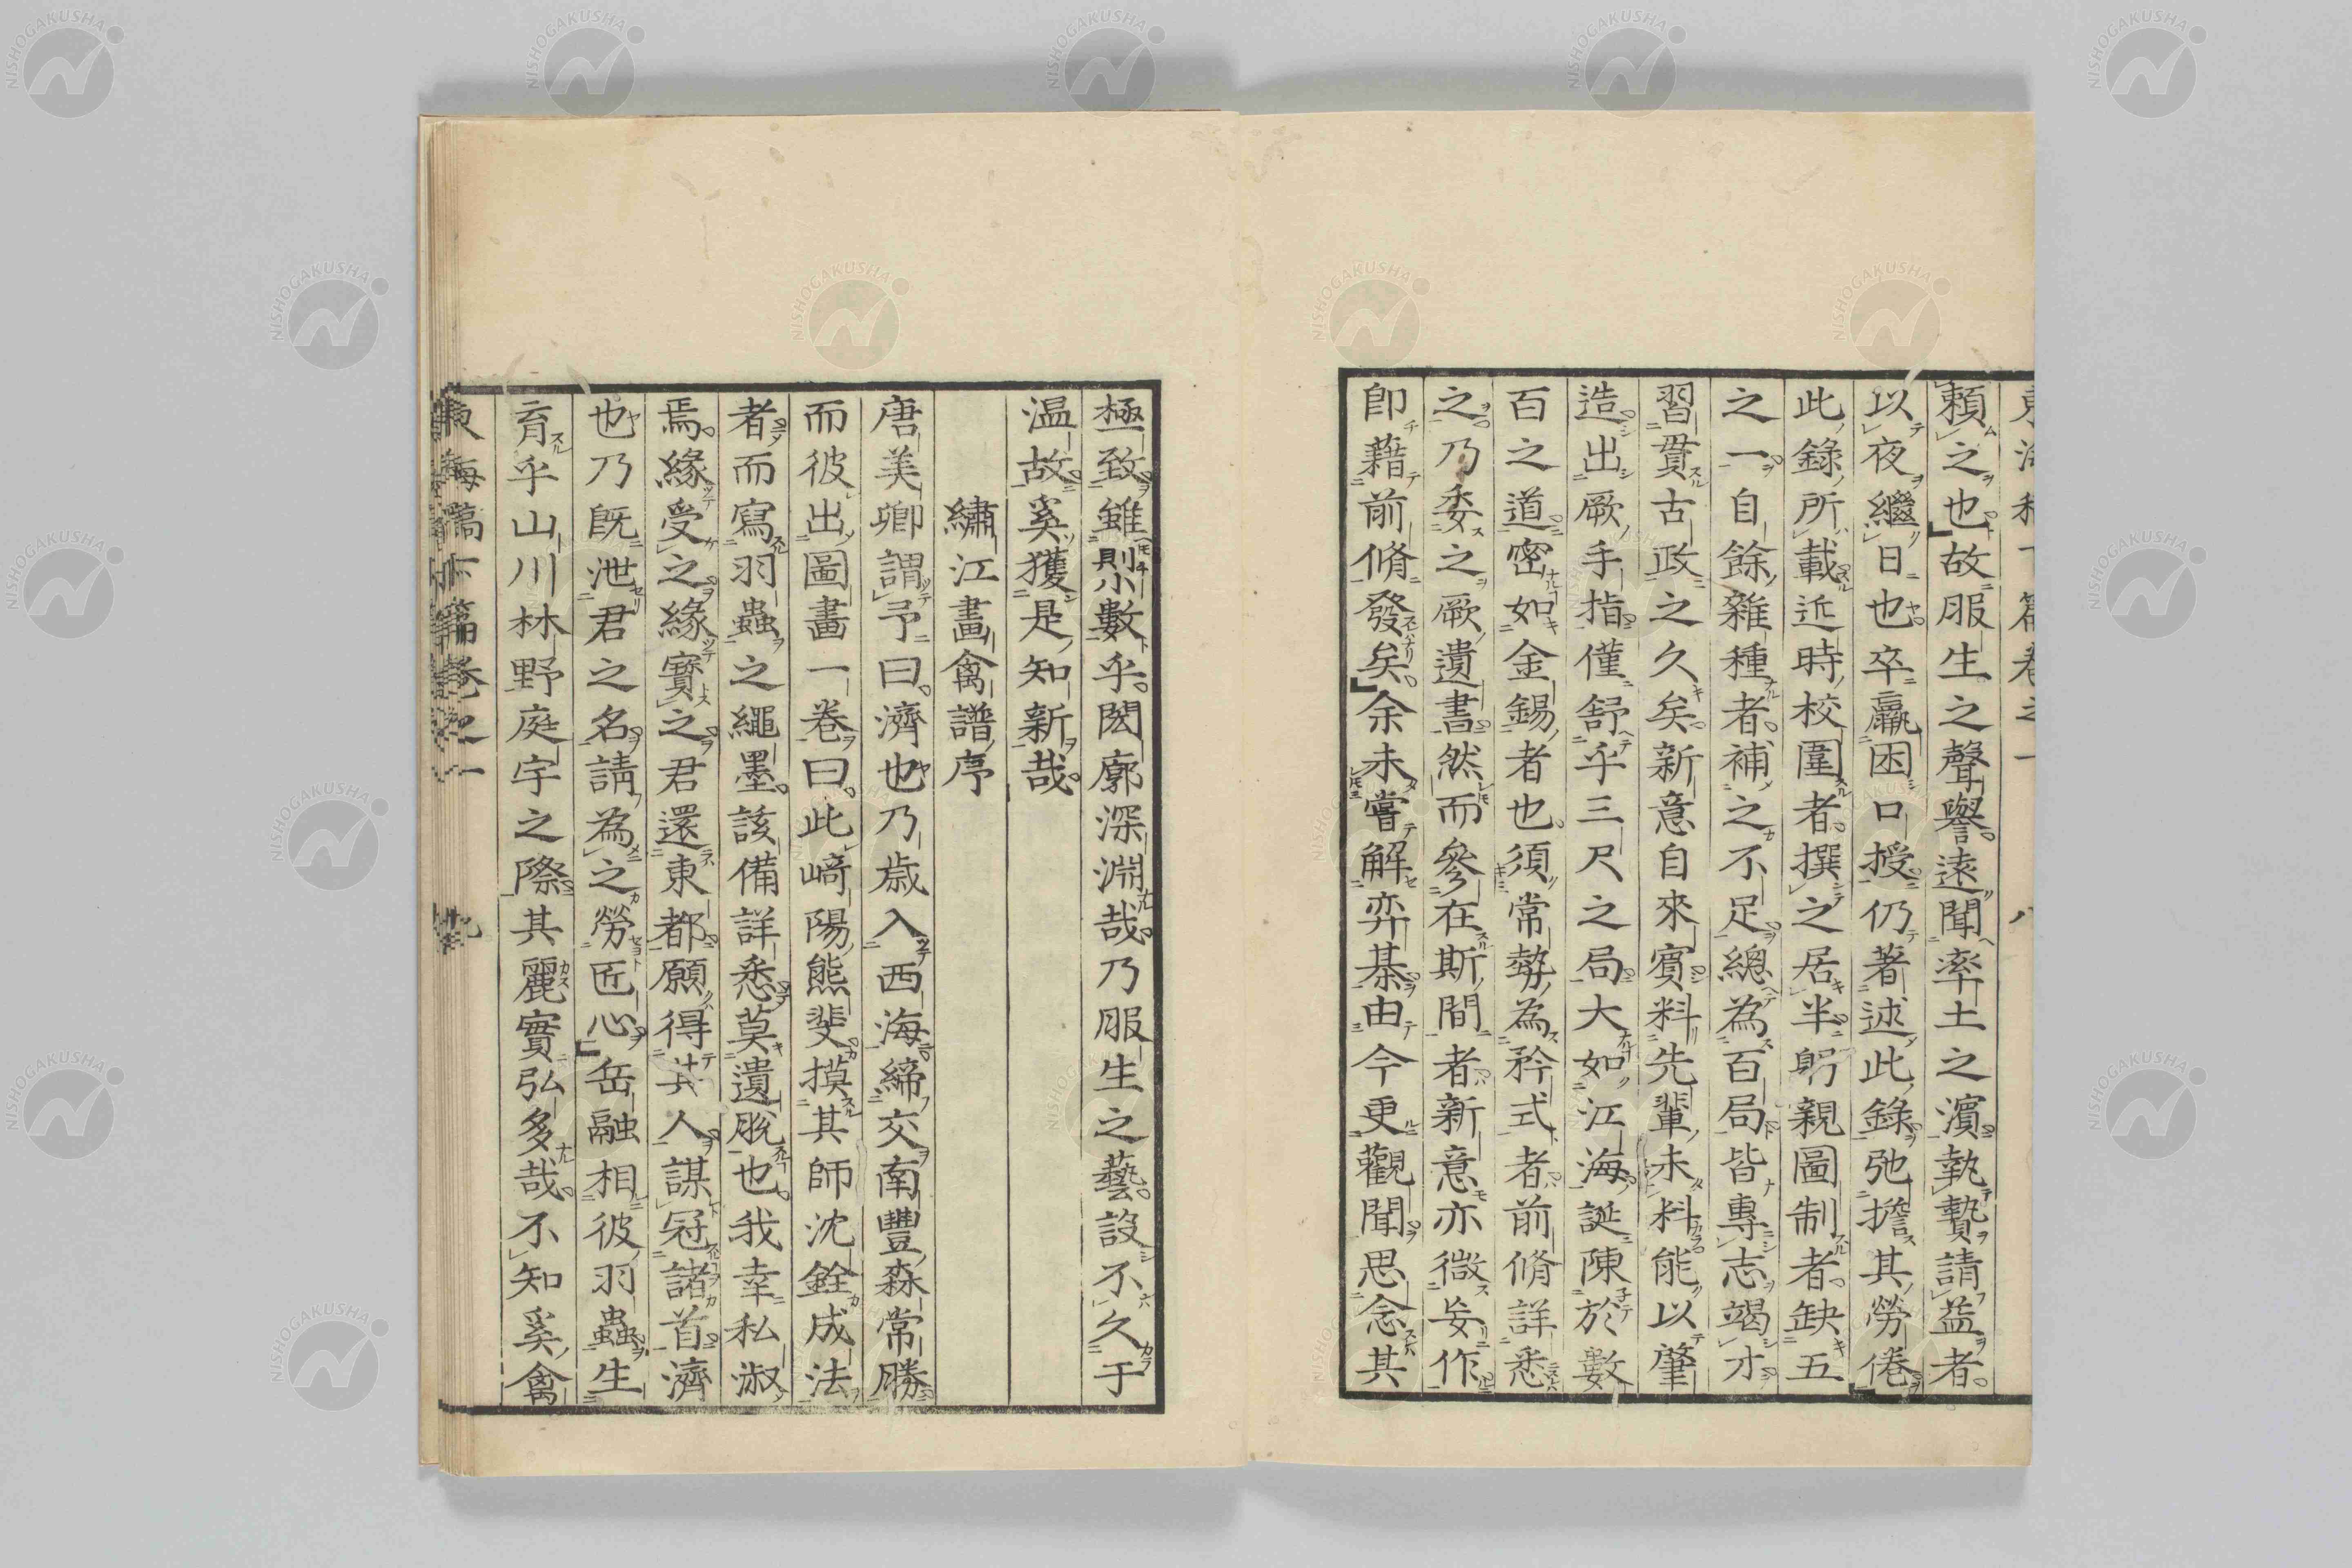 賴之也故服生之聲譽遠聞率土之濱執贄請益者
以夜繼日也卒羸困口授仍著述此錄弛擔其勞倦
此錄所載近時校圍者撰之居半躬親圖制者缺五
之一自餘雜種者補之不足總為百局皆專志竭才
習貫古政之久矣新意自來賓料先輩未料能以肇
造出厥手指僅舒乎三尺之局大如江海誕陳於數
百之道密如金錫者也須常勢為矜式者前脩詳悉
之乃委之厥遺書然而參在斯間者新意亦微妄作
卽藉前脩發矣余未嘗解弈棊由今更觀聞思念其
極致雖則小數乎閎廓深淵哉乃服生之藝設不久于
温故奚獲是知新哉
繡江畫禽譜序
唐美卿謂予曰濟也乃歲入西海締交南豐森常勝
而彼出圖畫一卷曰此﨑陽熊斐摸其師沈銓成法
者而寫羽蟲之繩墨該備詳悉莫遺脫也我幸私淑
焉緣受之緣寳之君還東都願得其人謀冠諸首濟
也乃旣泄君之名請為之勞匠心岳融相彼羽蟲生
育乎山川林野庭宇之際其麗實弘多哉不知奚禽
東海稿下篇卷之一 九